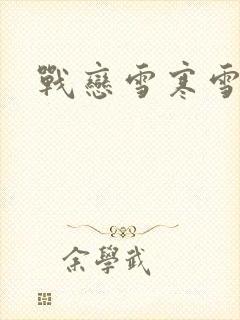 戰戀雪寒雪
余學武